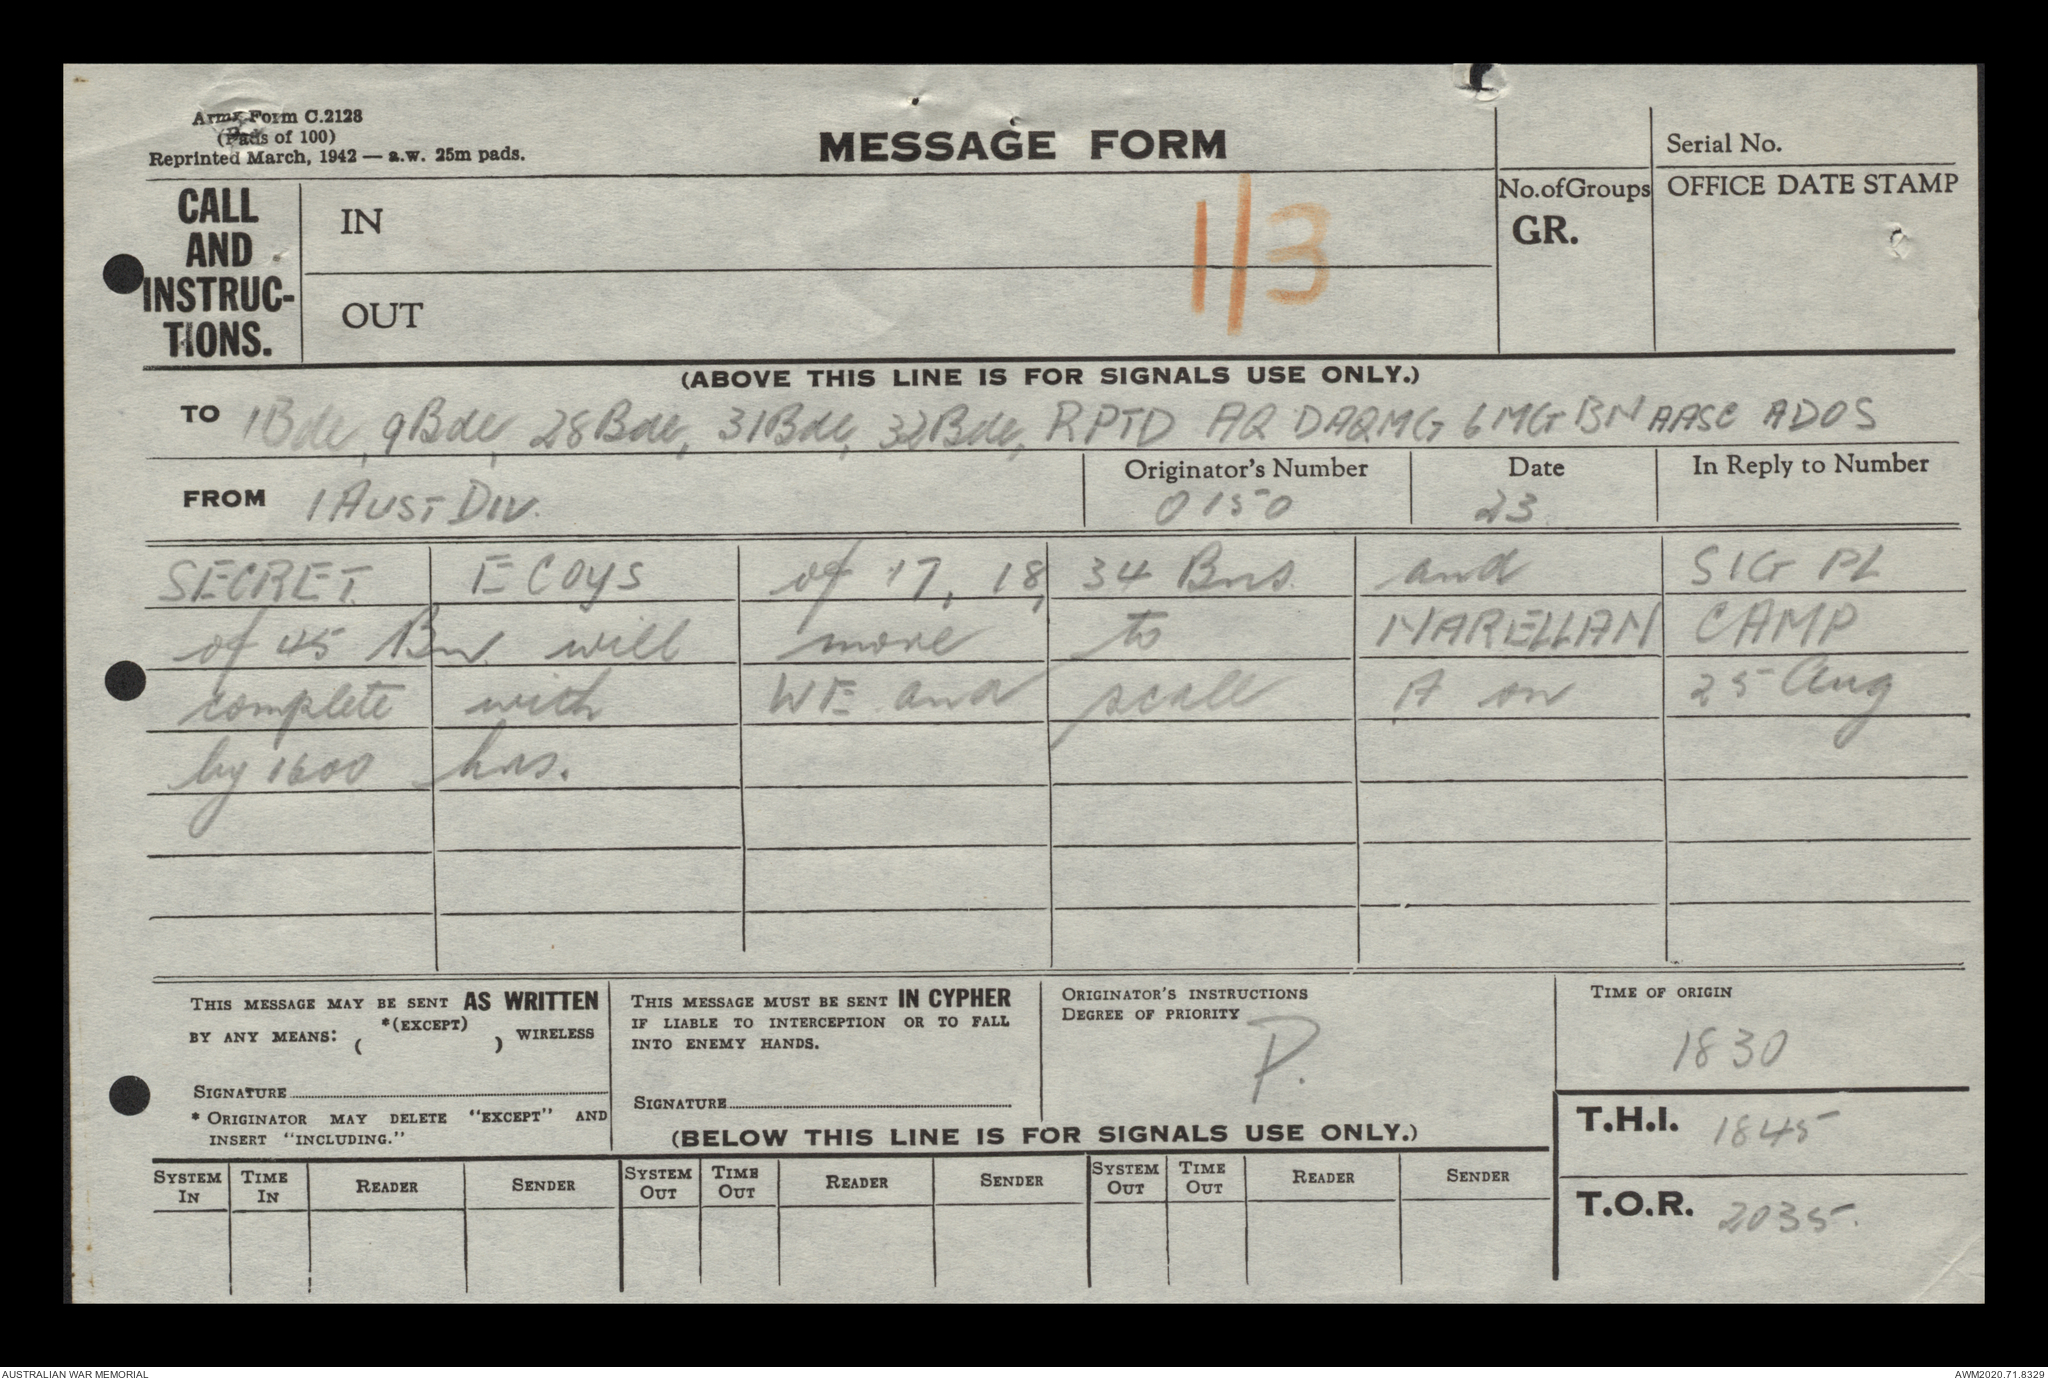 Army Form C.2128
(Pads of 100)
Reprinted March, 1942 — a.w. 25m pads.
MESSAGE FORM
Serial No.
CALL AND INSTRUC-TIONS.
IN
1/3
No.ofGroups
GR.
OFFICE DATE STAMP
OUT
(ABOVE THIS LINE IS FOR SIGNALS USE ONLY.)
TO 1Bde, 9Bde, 28Bde, 31Bde, 32Bde, RPTD AQ DAQMG 6 MG BN AASC ADOS
FROM 1 AUST DIV.
Originator's Number 0150
Date 23
In Reply to Number
SECRET. E Coys of 17, 18, 34 Bns. and SIG PL
of 45 Bn. will move to NARELLAN CAMP
complete with WE and scale A on 25 Aug
by 1600 hrs.
THIS MESSAGE MAY BE SENT AS WRITTEN
BY ANY MEANS: ( *(EXCEPT) ) WIRELESS
SIGNATURE
* ORIGINATOR MAY DELETE "EXCEPT" AND
INSERT "INCLUDING."
THIS MESSAGE MUST BE SENT IN CYPHER
IF LIABLE TO INTERCEPTION OR TO FALL
INTO ENEMY HANDS.
SIGNATURE
ORIGINATOR'S INSTRUCTIONS
DEGREE OF PRIORITY
P.
TIME OF ORIGIN
1830
T.H.I. 1845
T.O.R. 2035.
(BELOW THIS LINE IS FOR SIGNALS USE ONLY.)
SYSTEM IN TIME IN READER SENDER SYSTEM OUT TIME OUT READER SENDER SYSTEM OUT TIME OUT READER SENDER
AUSTRALIAN WAR MEMORIAL
AWM2020.71.8329